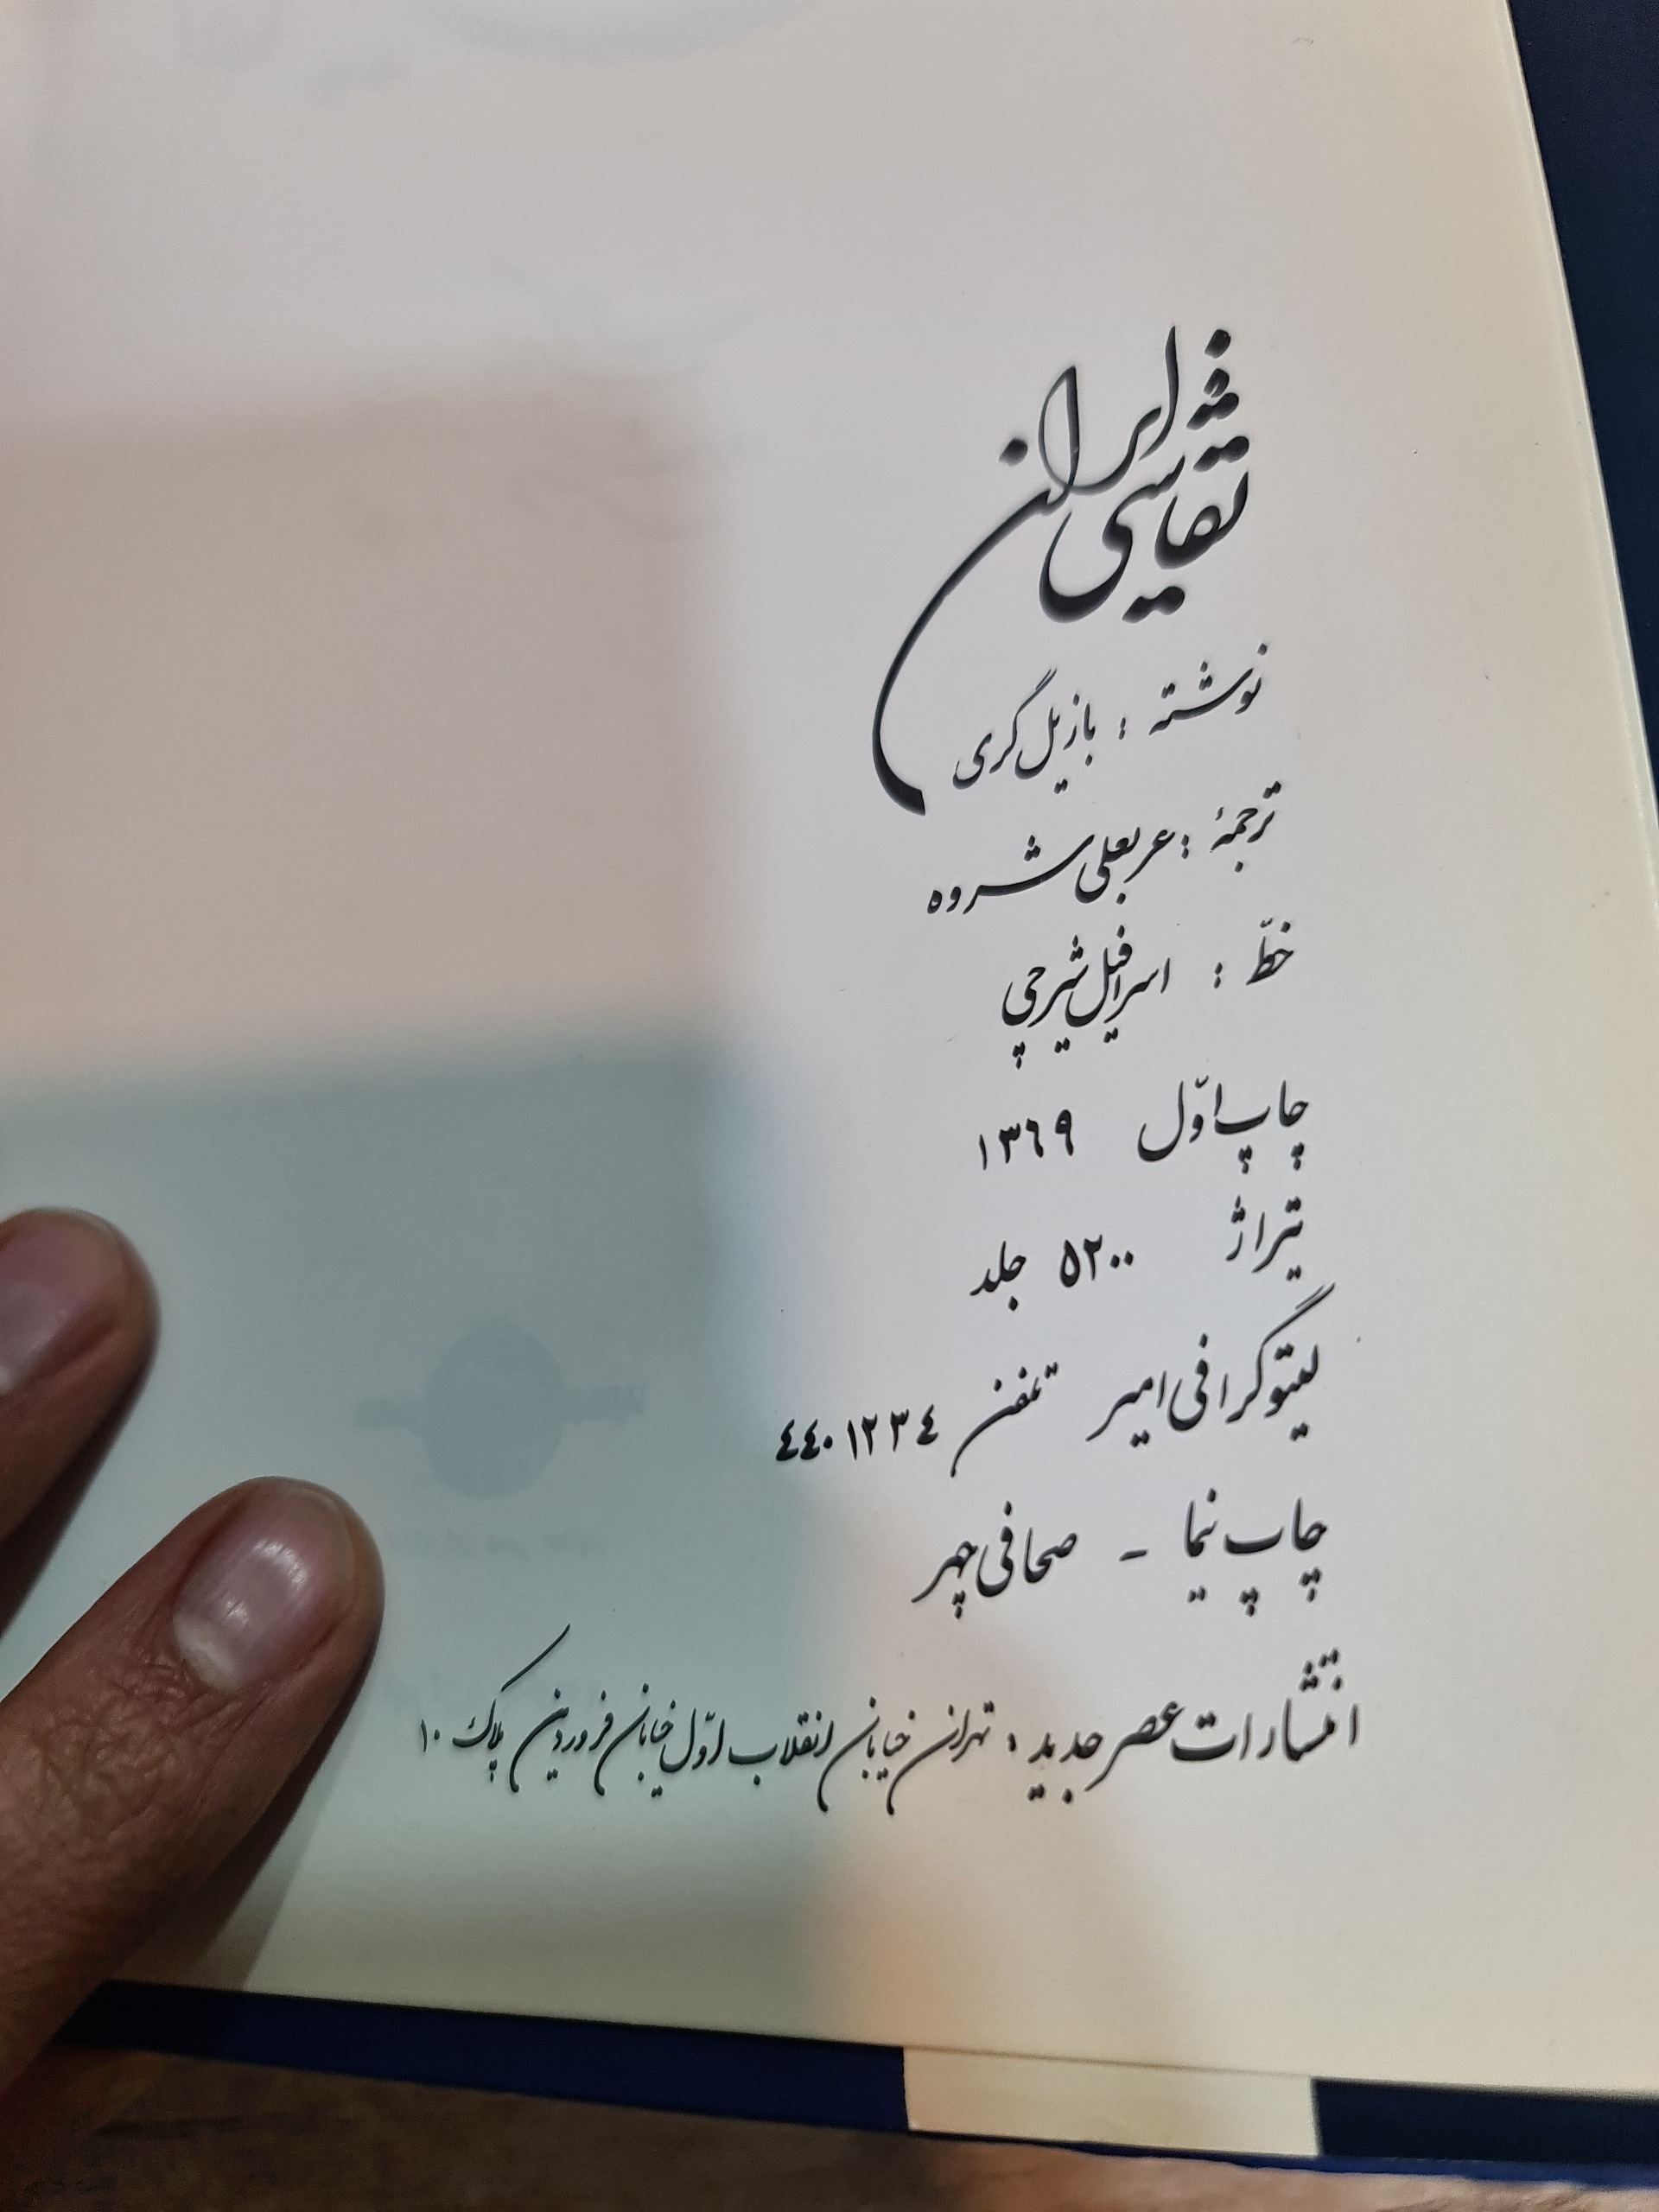 نقاشی ایران
نوشته : بازیل گری
ترجمهٔ : عربعلی شروه
خطّ : اسرافیل شیرچی
چاپ اوّل ۱۳۶۹
تیراژ ۵۲۰۰ جلد
لیتوگرافی امیر تلفن ۴۴۰۱۲۳۴
چاپ نیما - صحافی چهر
انتشارات عصر جدید : تهران خیابان انقلاب اوّل خیابان فروردین پلاک ۱۰